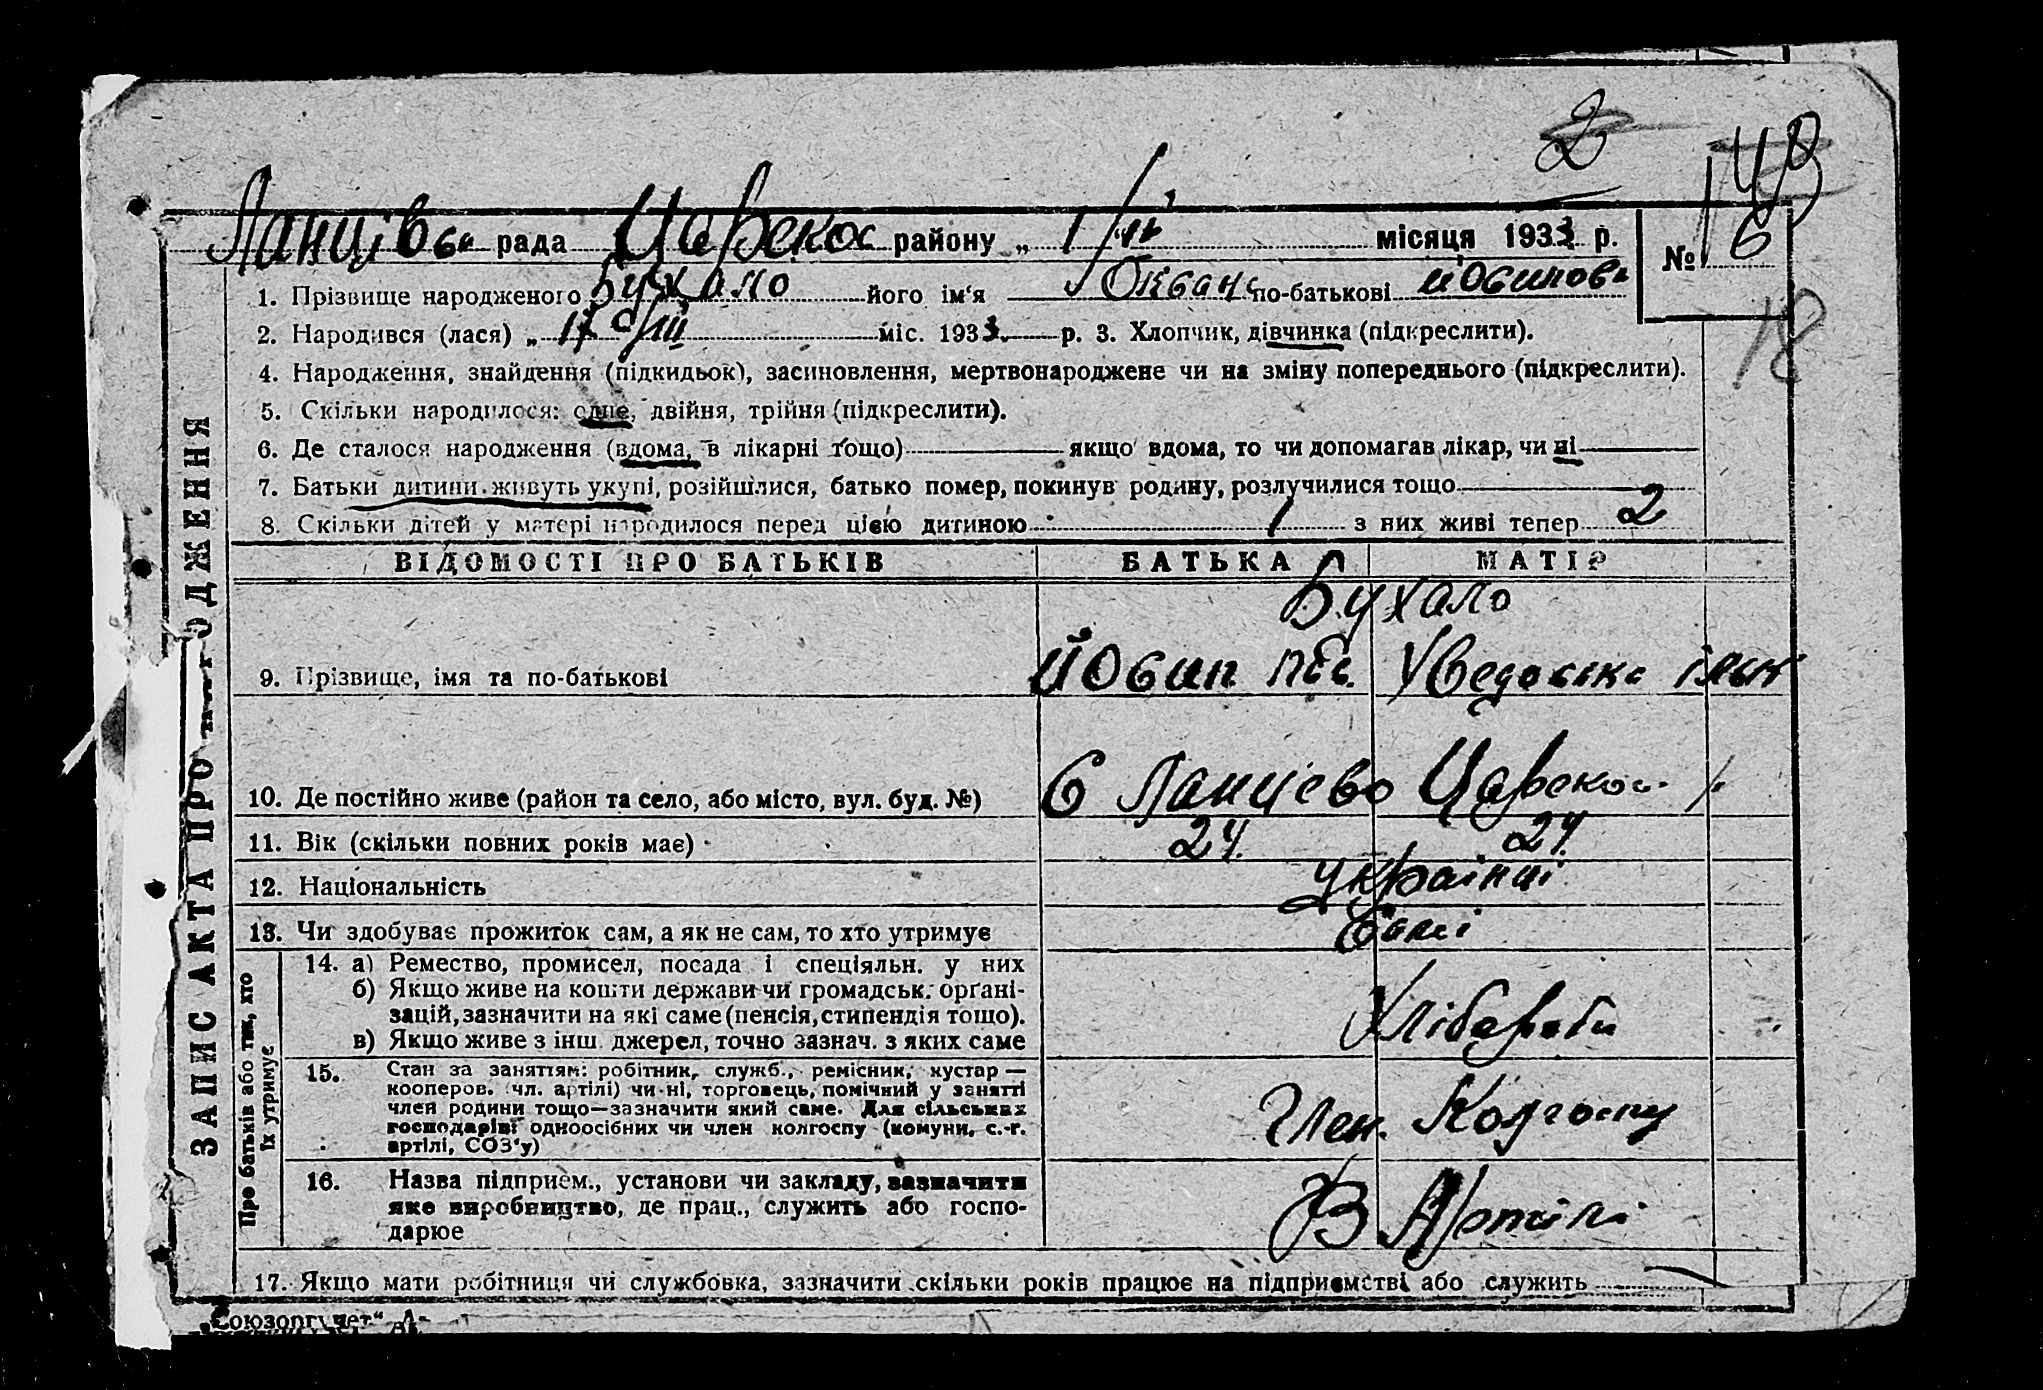 2
148
Ланцівсь рада Царекос району „ 1/IV місяця 1933 р. № 6
1. Прізвище народженого Бухало його ім‘я Оксана по-батькові Йосипові
18
2. Народився (лася) „ 17 с/III міс. 1933 р. 3. Хлопчик, дівчинка (підкреслити).
4. Народження, знайдення (підкидьок), засиновлення, мертвонароджене чи на зміну попереднього (підкреслити).
5. Скільки народилося: одне, двійня, трійня (підкреслити).
6. Де сталося народження (вдома, в лікарні тощо) якщо вдома, то чи допомагав лікар, чи ні
7. Батьки дитини живуть укупі, розійшлися, батько помер, покинув родину, розлучилися тощо
8. Скільки дітей у матері народилося перед цією дитиною 1 з них живі тепер 2
ЗАПИС АКТА ПРО НАРОДЖЕННЯ
ВІДОМОСТІ ПРО БАТЬКІВ БАТЬКА МАТІР
Бухало
9. Прізвище, імя та по-батькові Йосип
10. Де постійно живе (район та село, або місто, вул. буд. №) С Ланцево Царекос
11. Вік (скільки повних років має) 24. 24.
12. Національність українці
13. Чи здобуває прожиток сам, а як не сам, то хто утримує Самі
Про батьків або тих, хто їх утримує
14. а) Ремество, промисел, посада і спеціяльн. у них
б) Якщо живе на кошти держави чи громадськ. орґані-
зацій, зазначити на які саме (пенсія, стипендія тощо).
в) Якщо живе з інш. джерел, точно зазнач. з яких саме
Хлібороби
15. Стан за заняттям: робітник, служб., ремісник, кустар —
кооперов. (чл. артілі) чи ні, торговець, помічний у занятті
член родини тощо—зазначити який саме. Для сільських
господарів: одноосібних чи член колгоспу (комуни, с.-г.
артілі, СОЗ‘у)
Член. Колгоспу
16. Назва підприєм., установи чи закладу, зазначити
яке виробництво, де прац., служить або госпо-
дарює
В Артілі
17. Якщо мати робітниця чи службовка, зазначити скільки років працює на підприємстві або служить
„Союзоргучет“